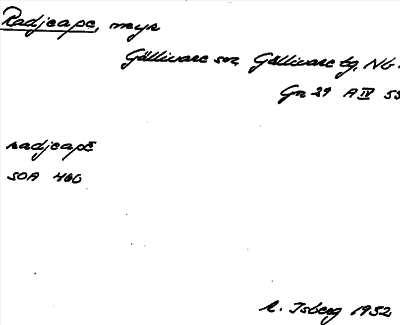 Radjeape, myr
Gällivare sn, Gällivare tg, Nb.
Gn 29 A IV 55
radjeape
SOA 460
R. Isberg 1932